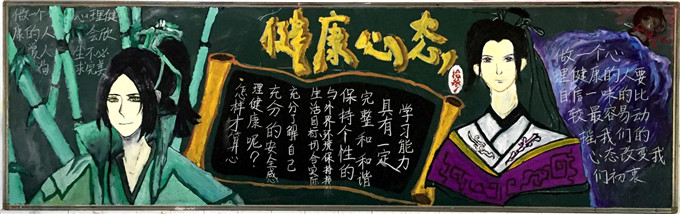 做一个 心理健
康的人 会欣
赏人 生不必
求完美
健康心态
怎样才算心
理健康呢?
充分的安全感
充分了解自己
生活目标切合实际
与外界环境保持
保持个性的
完整和和谐
具有一定
学习能力
做一个心
理健康的人要
自信一味的比
较最容易动
摇我们的
心态改变我
们初衷